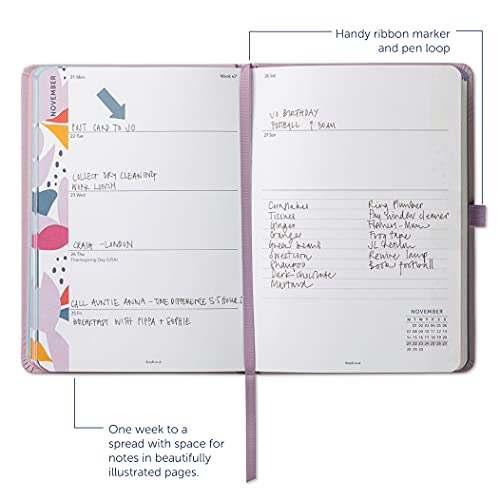 Handy ribbon marker
and pen loop
NOVEMBER
21 Mon
Week 47
POST CARD TO JO
22 Tue
COLLECT DRY CLEANING
WORK LUNCH
23 Wed
CRAIG - LONDON
24 Thu
Thanksgiving Day (USA)
CALL AUNTIE ANNA - TIME DIFFERENCE 5.5 HOURS
25 Fri
BREAKFAST WITH PIPPA + SOPHIE
26 Sat
JO BIRTHDAY
FOOTBALL 9.30AM
27 Sun
Cornflakes
Tissues
Ginger
Oranges
Green beans
Sweetcorn
Shampoo
Dark chocolate
Mustard
Ring Plumber
Pay window cleaner
Flowers - Mum
Frog tape
Rewire lamp
Book football
NOVEMBER
M T W T F S S
01 02 03 04 05 06
07 08 09 10 11 12 13
14 15 16 17 18 19 20
21 22 23 24 25 26 27
28 29 30
One week to a
spread with space for
notes in beautifully
illustrated pages.